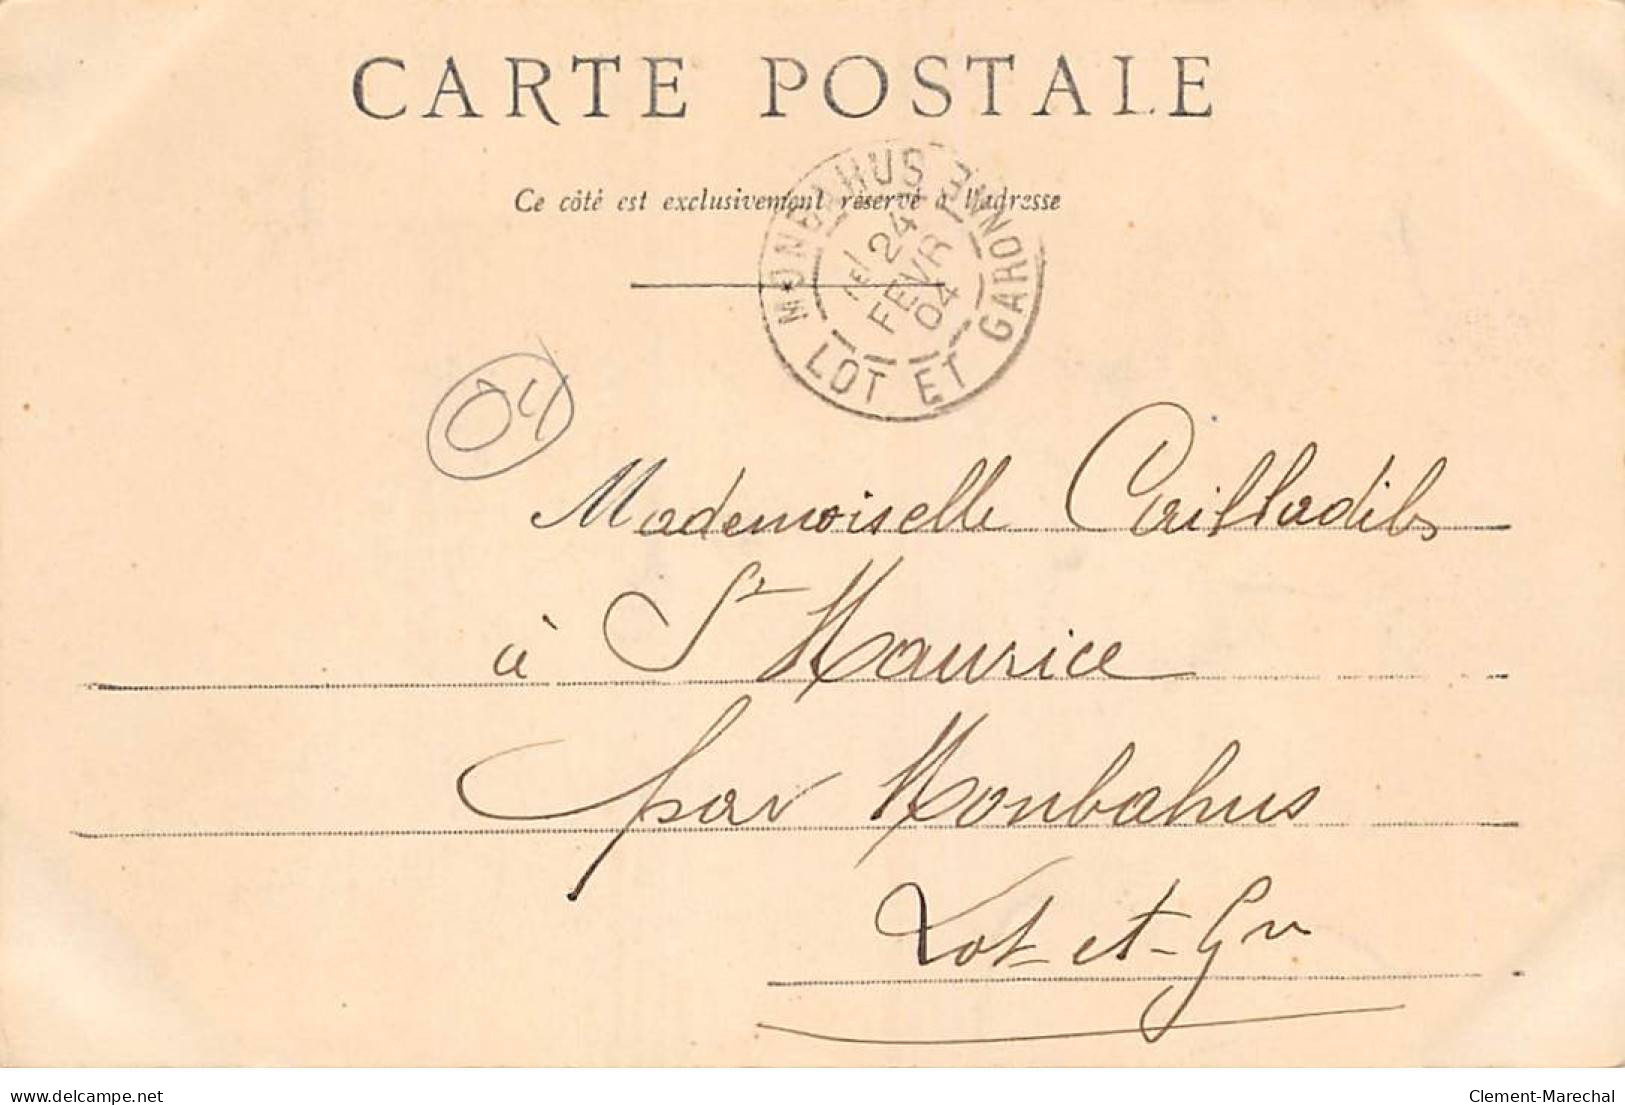 CARTE POSTALE
Ce côté est exclusivement réservé à l'adresse
MONBAHUS
LOT ET GARONNE
1E/
24
FEVR
04
04
Mademoiselle
à St Maurice
par Monbahus
Lot-et-Gne
delcampe.net
Clement-Marechal